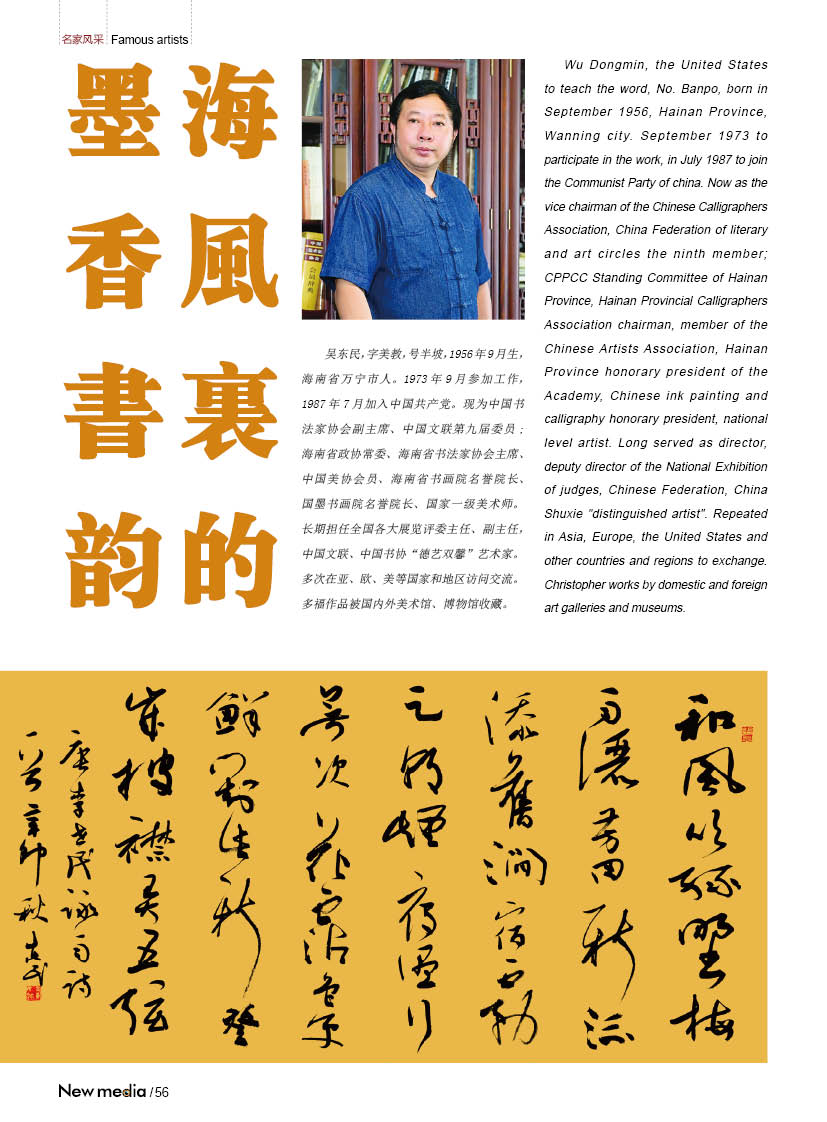 名家风采 Famous artists
海風裏的
墨香書韵
会员辞典
吴东民，字美教，号半坡，1956 年 9 月生，
海南省万宁市人。1973 年 9 月参加工作，
1987 年 7 月加入中国共产党。现为中国书
法家协会副主席、中国文联第九届委员；
海南省政协常委、海南省书法家协会主席、
中国美协会员、海南省书画院名誉院长、
国墨书画院名誉院长、国家一级美术师。
长期担任全国各大展览评委主任、副主任，
中国文联、中国书协“德艺双馨”艺术家。
多次在亚、欧、美等国家和地区访问交流。
多福作品被国内外美术馆、博物馆收藏。
Wu Dongmin, the United States
to teach the word, No. Banpo, born in
September 1956, Hainan Province,
Wanning city. September 1973 to
participate in the work, in July 1987 to join
the Communist Party of china. Now as the
vice chairman of the Chinese Calligraphers
Association, China Federation of literary
and art circles the ninth member;
CPPCC Standing Committee of Hainan
Province, Hainan Provincial Calligraphers
Association chairman, member of the
Chinese Artists Association, Hainan
Province honorary president of the
Academy, Chinese ink painting and
calligraphy honorary president, national
level artist. Long served as director,
deputy director of the National Exhibition
of judges, Chinese Federation, China
Shuxie "distinguished artist". Repeated
in Asia, Europe, the United States and
other countries and regions to exchange.
Christopher works by domestic and foreign
art galleries and museums.
和風吹綠野梅
雨灑芳田新流
添舊澗宿霧
足朝煙雁濕行
無次花霑色更
鮮對此欣登
歲披襟弄五弦
唐李世民詠雨詩
一首辛卯秋東民
New media / 56